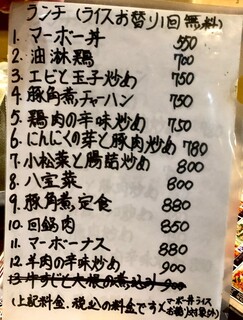 ランチ (ライスお替り1回無料)
1. マーボー丼 550
2. 油淋鶏 700
3. エビと玉子炒め 750
4. 豚角煮チャーハン 750
5. 鶏肉の辛味炒め 750
6. にんにくの芽と豚肉炒め 780
7. 小松菜と腸詰炒め 800
8. 八宝菜 800
9. 豚角煮定食 880
10. 回鍋肉 850
11. マーボーナス 880
12. 羊肉の辛味炒め 900
13. 牛すじと大根の煮込み 900
(上記料金、税込の料金です)(マーボー丼ライス
お替り対象外)